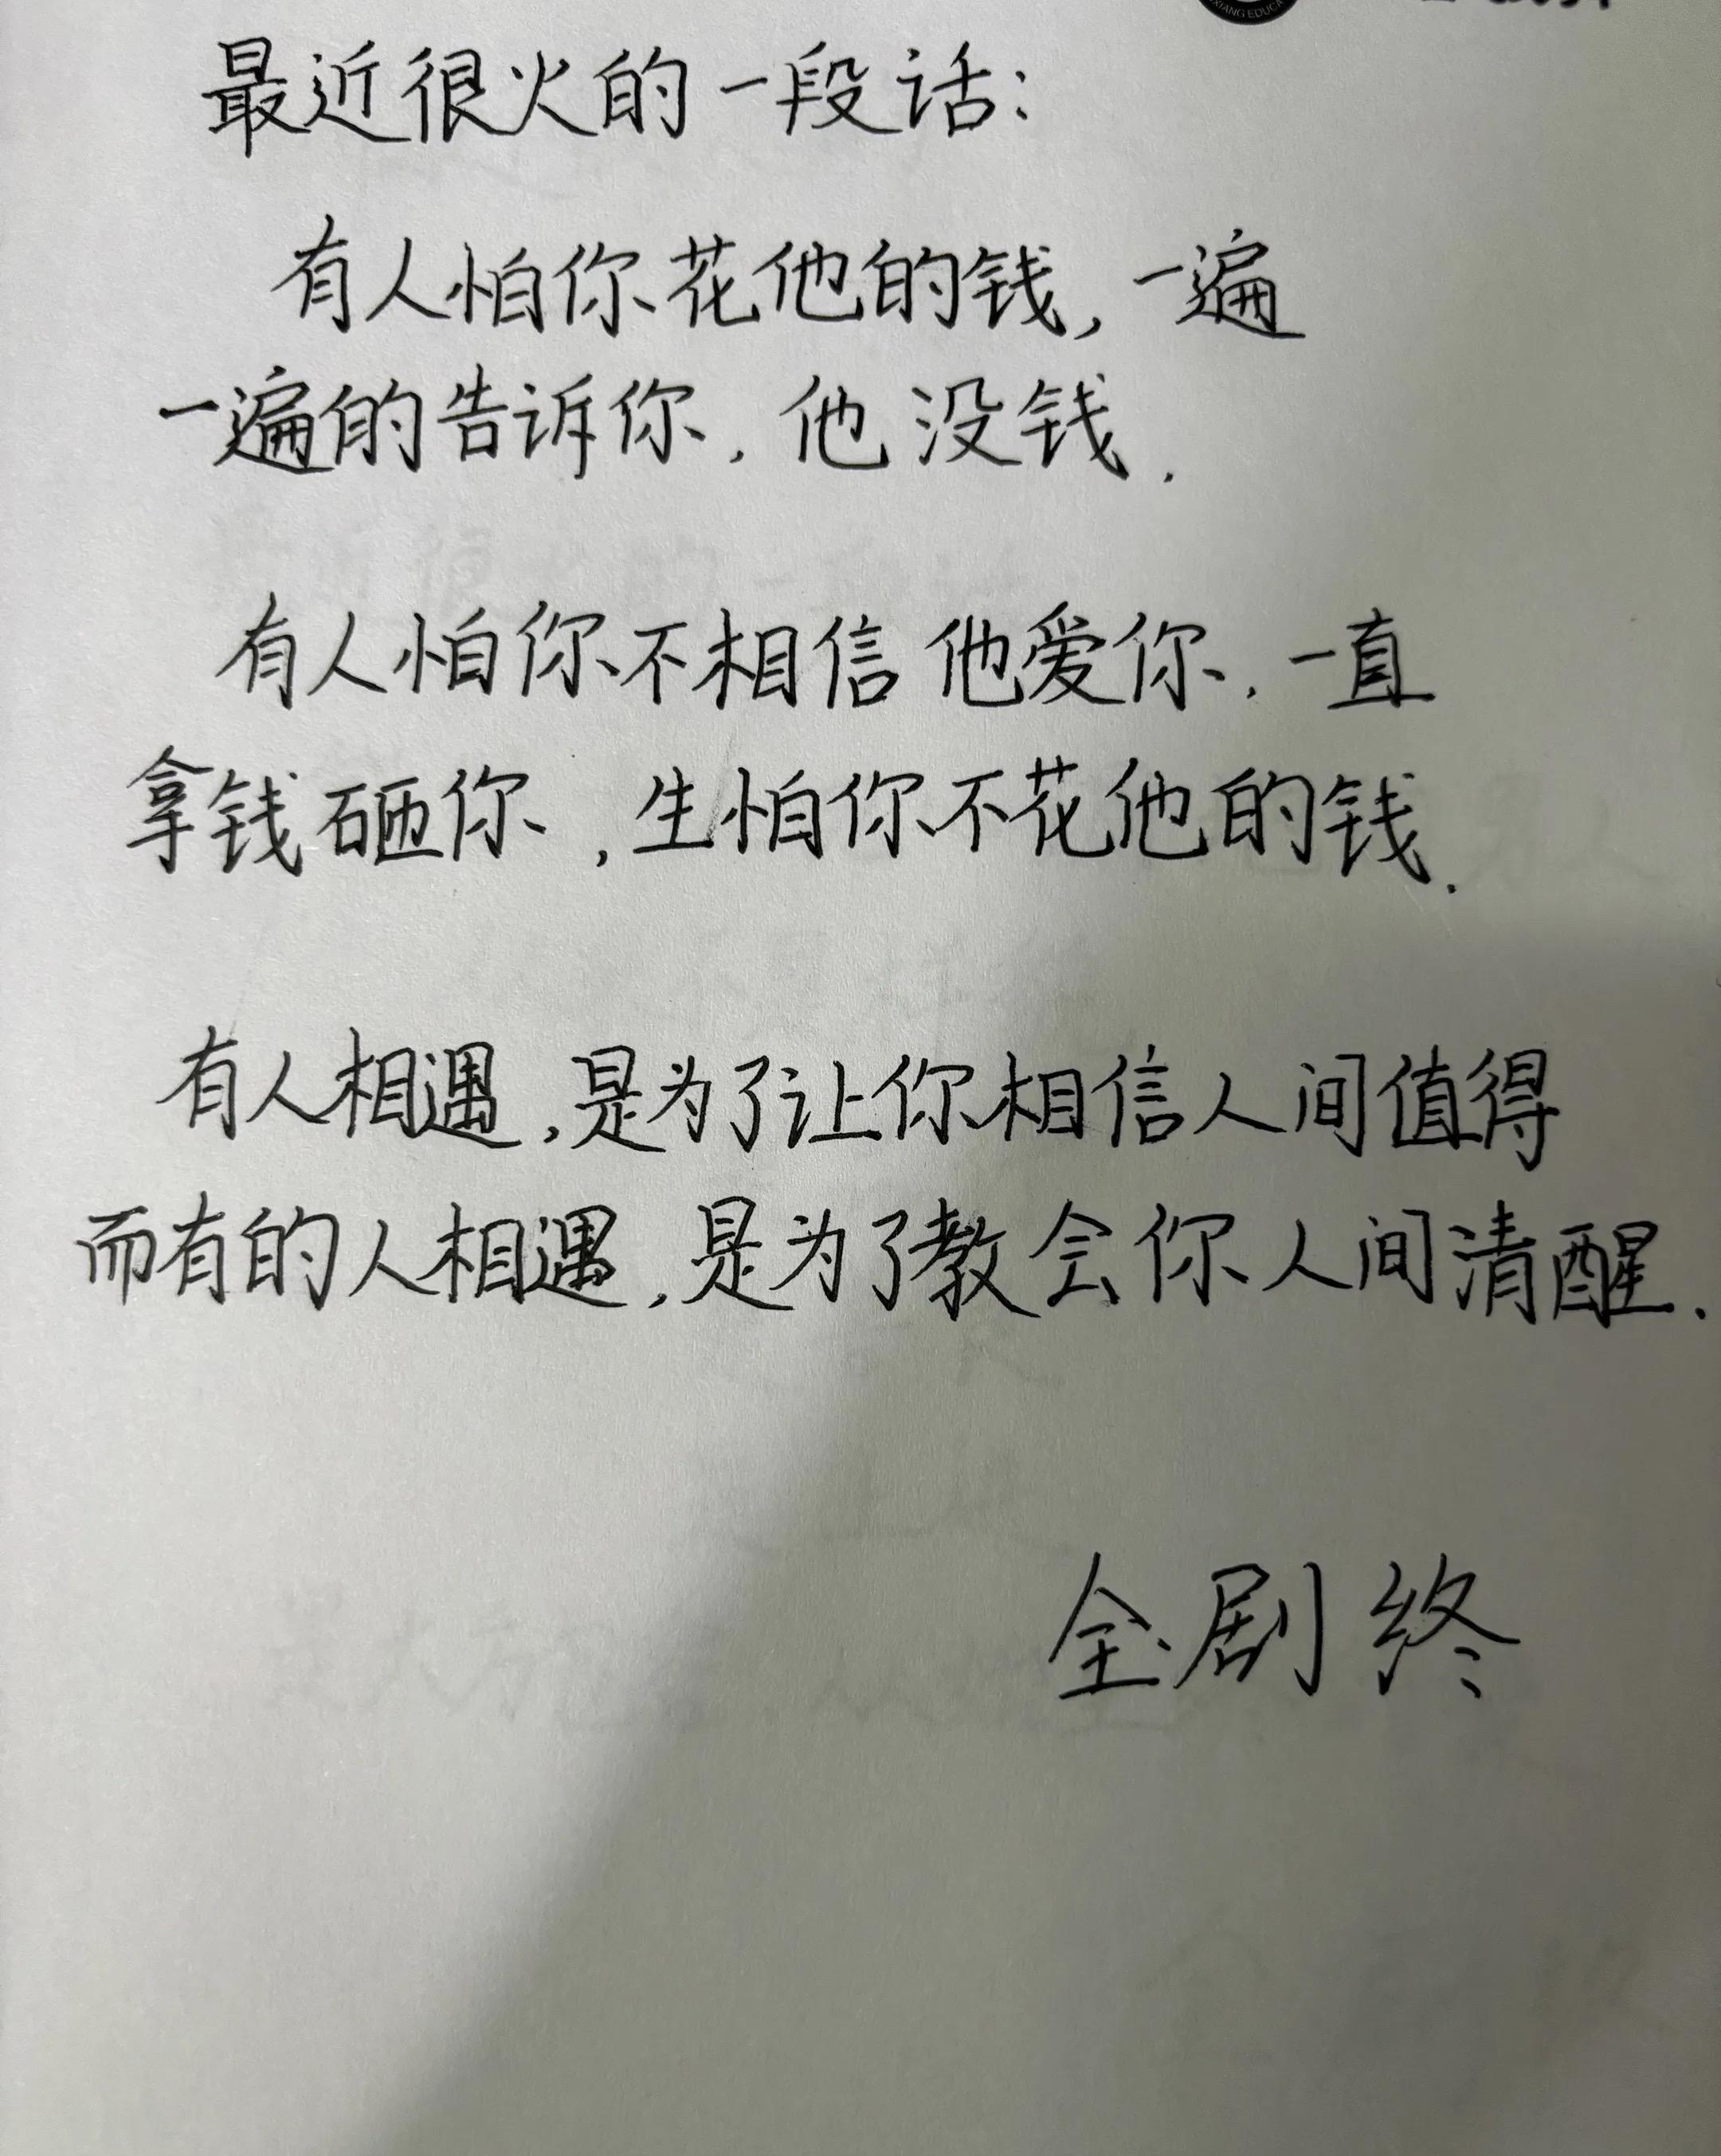 XIANG EDUCA
最近很火的一段话:
有人怕你花他的钱,一遍
一遍的告诉你,他没钱.
有人怕你不相信他爱你,一直
拿钱砸你,生怕你不花他的钱.
有人相遇,是为了让你相信人间值得
而有的人相遇,是为了教会你人间清醒.
全剧终